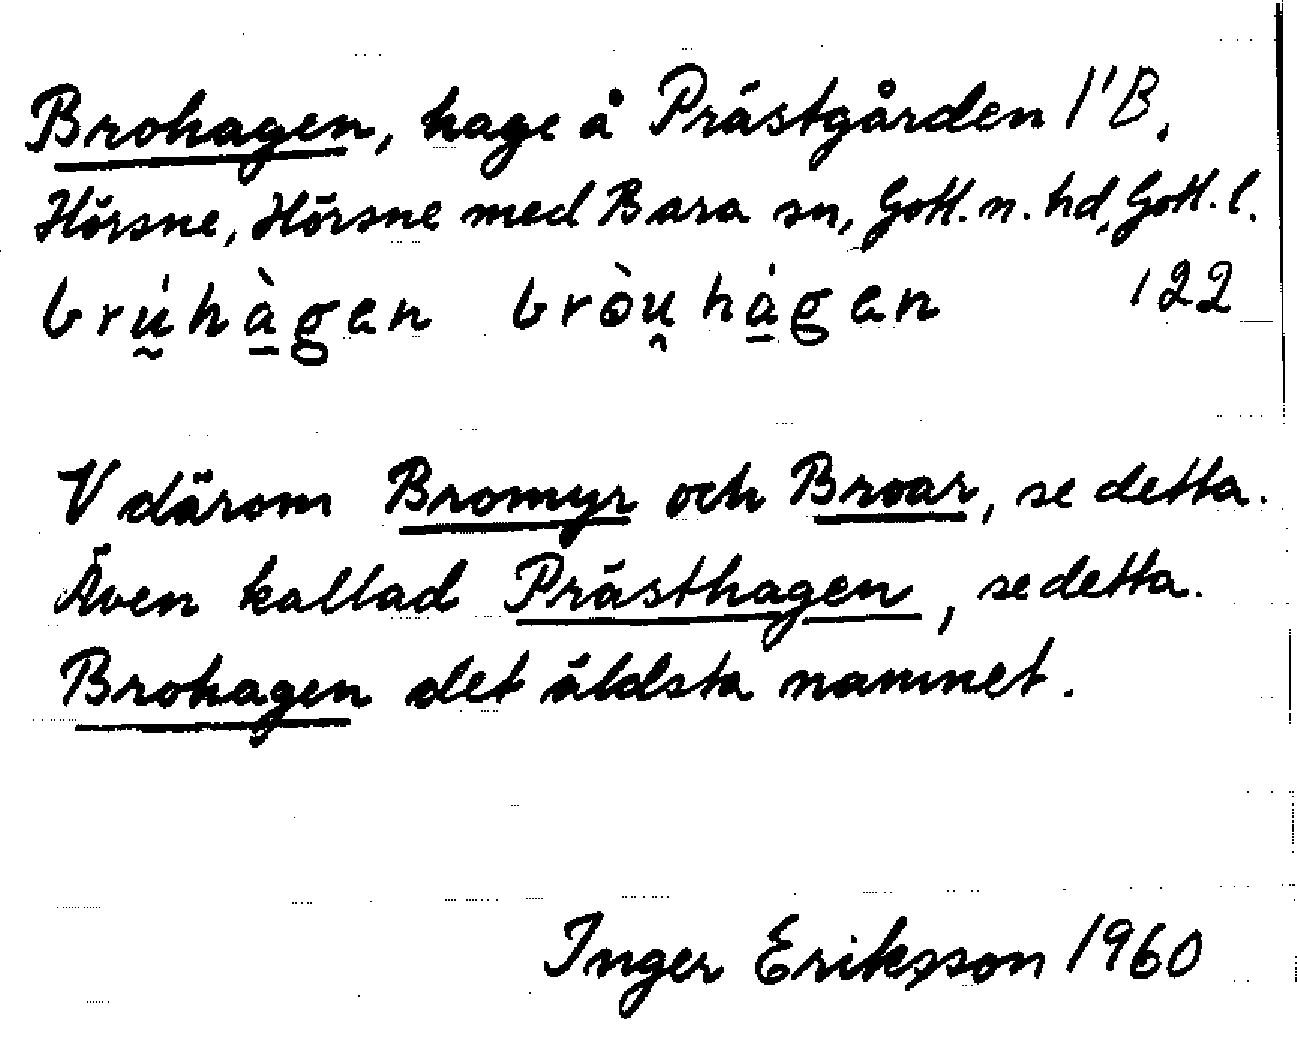 Brohagen, hage å Prästgården 1'B,
Hörsne, Hörsne med Bara sn, Gotl. n. hd, Gotl. l.
brṵ́hà̱gen bròu̯há̱gen 122
V därom Bromyr och Broar, se detta.
Även kallad Prästhagen, se detta.
Brohagen det äldsta namnet.
Inger Eriksson 1960